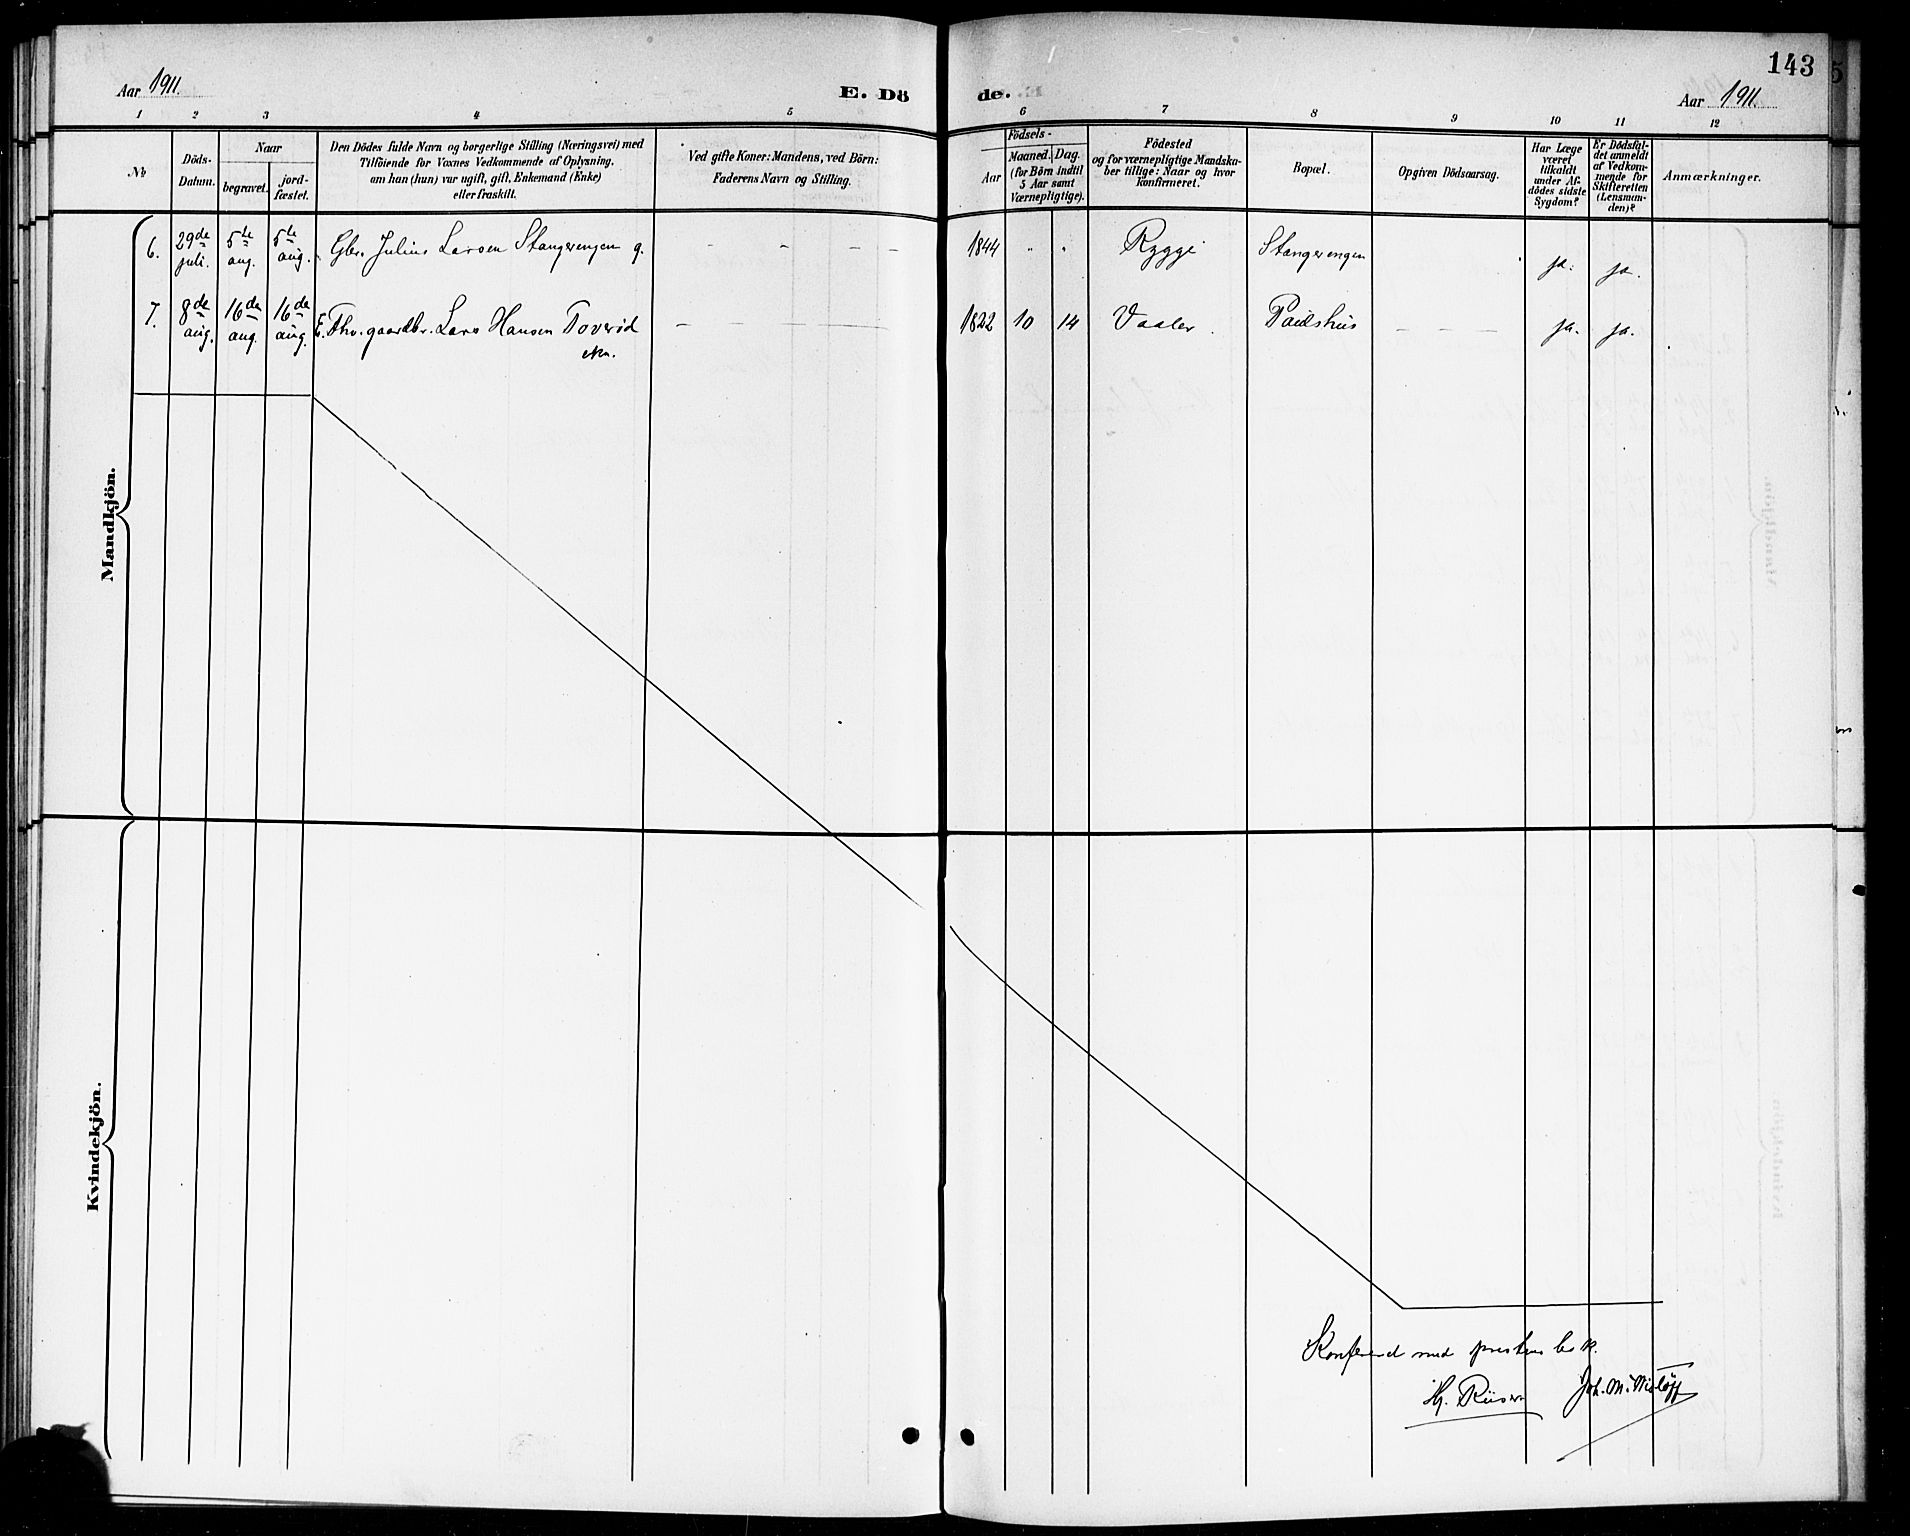 143
Aar 1911.
E. Dö
de.
Aar 1911.
1 2 3 4 5 6 7 8 9 10 11 12
No
Döds-
Datum.
Naar
begravet.
jord-
fæstet.
Den Dödes fulde Navn og borgerlige Stilling (Næringsvei) med
Tilföiende for Voxnes Vedkommende af Oplysning.
om han (hun) var ugift, gift, Enkemand (Enke)
eller fraskilt.
Ved gifte Koner: Mandens, ved Börn:
Faderens Navn og Stilling.
Födsels-
Aar
Maaned. Dag.
(for Börn indtil
5 Aar samt
Værnepligtige).
Födested
og for værnepligtige Mandska-
ber tillige: Naar og hvor
konfirmeret.
Bopæl.
Opgiven Dödsaarsag.
Har Læge
været
tilkaldt
under Af-
dödes sidste
Sygdom?
Er Dödsfal-
det anmeldt
af Vedkom-
mende for
Skifteretten
(Lensman-
den)?
Anmærkninger.
Mandkjön.
6. 29de juli. 5te aug. 5te aug. Gbr. Julius Larsen Stangerengen g. - - - - 1844 " " Rygge Stangerengen ja. ja.
7. 8de aug. 16de aug. 16de aug. Fhv. gaardbr. Lars Hansen Toverød - - - - 1822 10 14 Vaaler Paulshus - - - ja. ja.
ekm.
Kvindekjön.
Konfereret med prestens bok.
Hj. Riiser Joh. M.